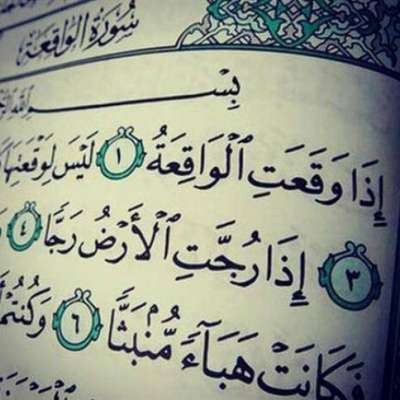 سُورَةُ الوَاقِعَةِ
بِسْمِ ٱللَّهِ
إِذَا وَقَعَتِ ٱلْوَاقِعَةُ ١ لَيْسَ لِوَقْعَتِهَا
٣ إِذَا رُجَّتِ ٱلْأَرْضُ رَجًّا ٤
فَكَانَتْ هَبَآءً مُّنۢبَثًّا ٦ وَكُنتُمْ